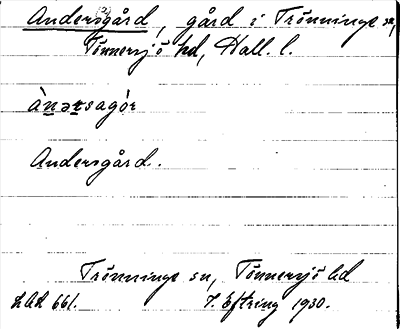 Andersgård, gård i Trönninge sn,
Tönnersjö hd, Hall. l.
ànərsagór
Andersgård.
Trönninge sn, Tönnersjö hd
LAL 661. 7. Eftring 1930.